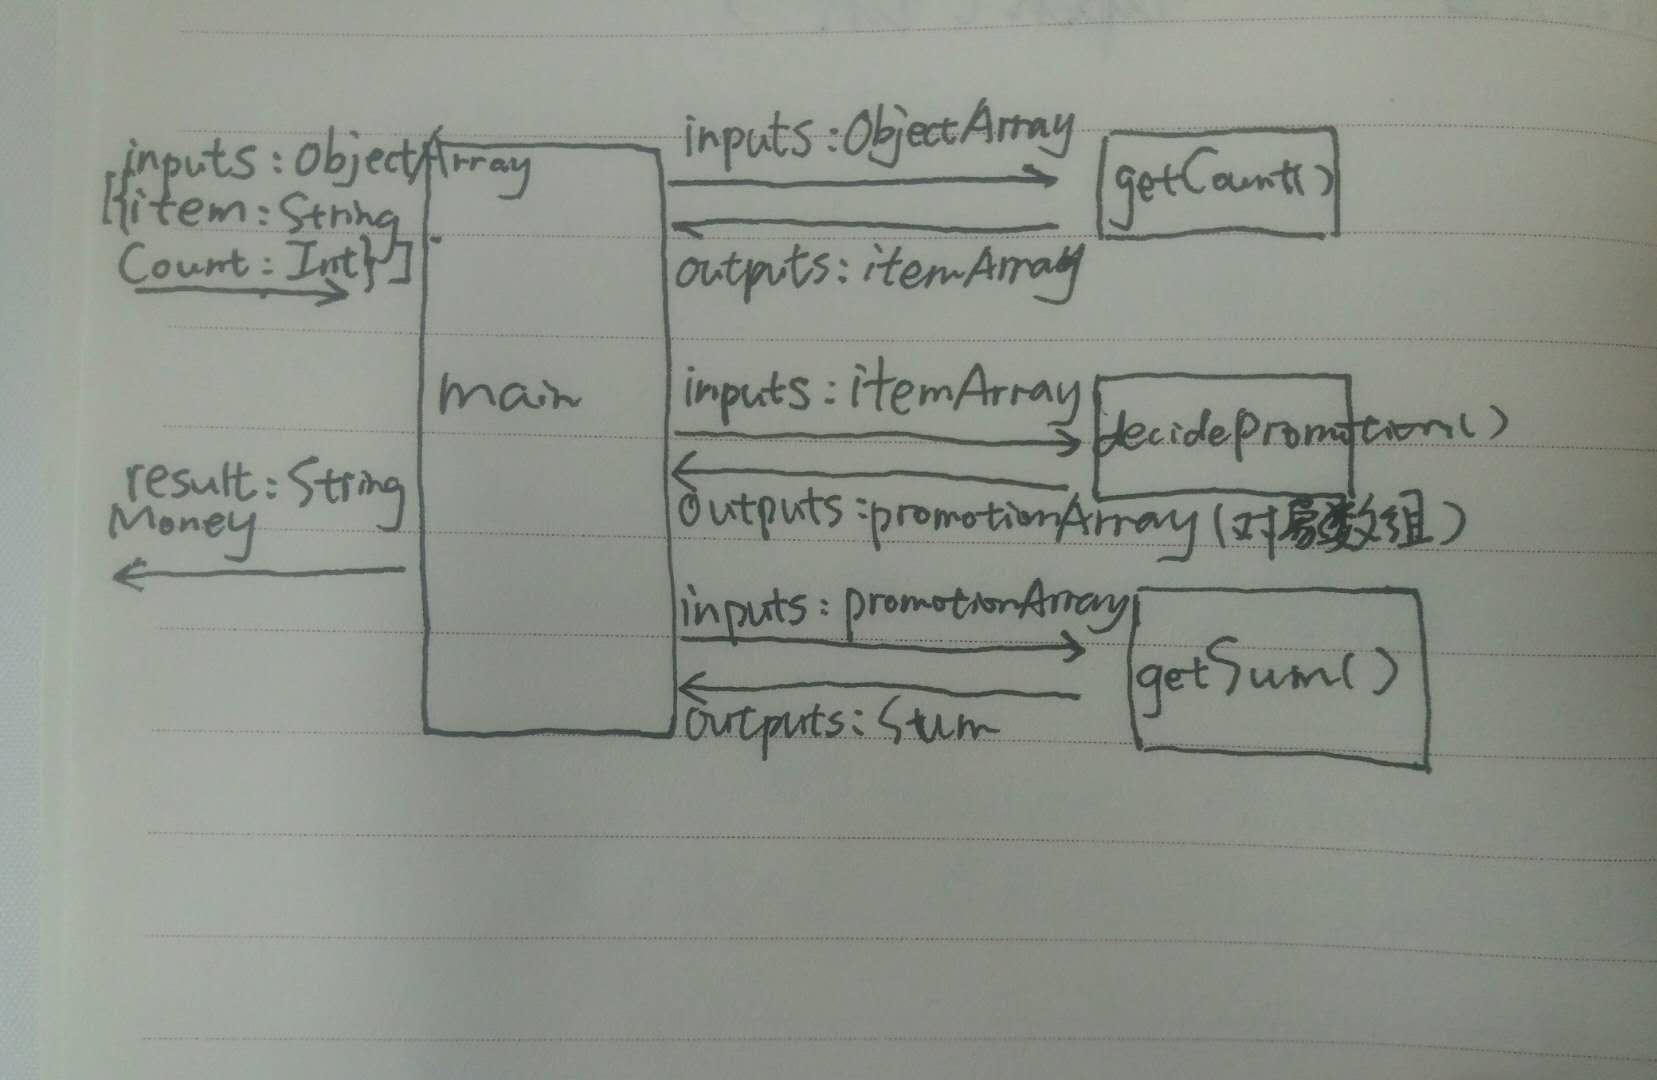 inputs:ObjectArray
[{item:String
Count:Int}]
main
result:String
Money
inputs:ObjectArray
getCount()
outputs:itemArray
inputs:itemArray
decidepromotion()
outputs:promotionArray(对象数组)
inputs:promotionArray
getSum()
outputs:Sum